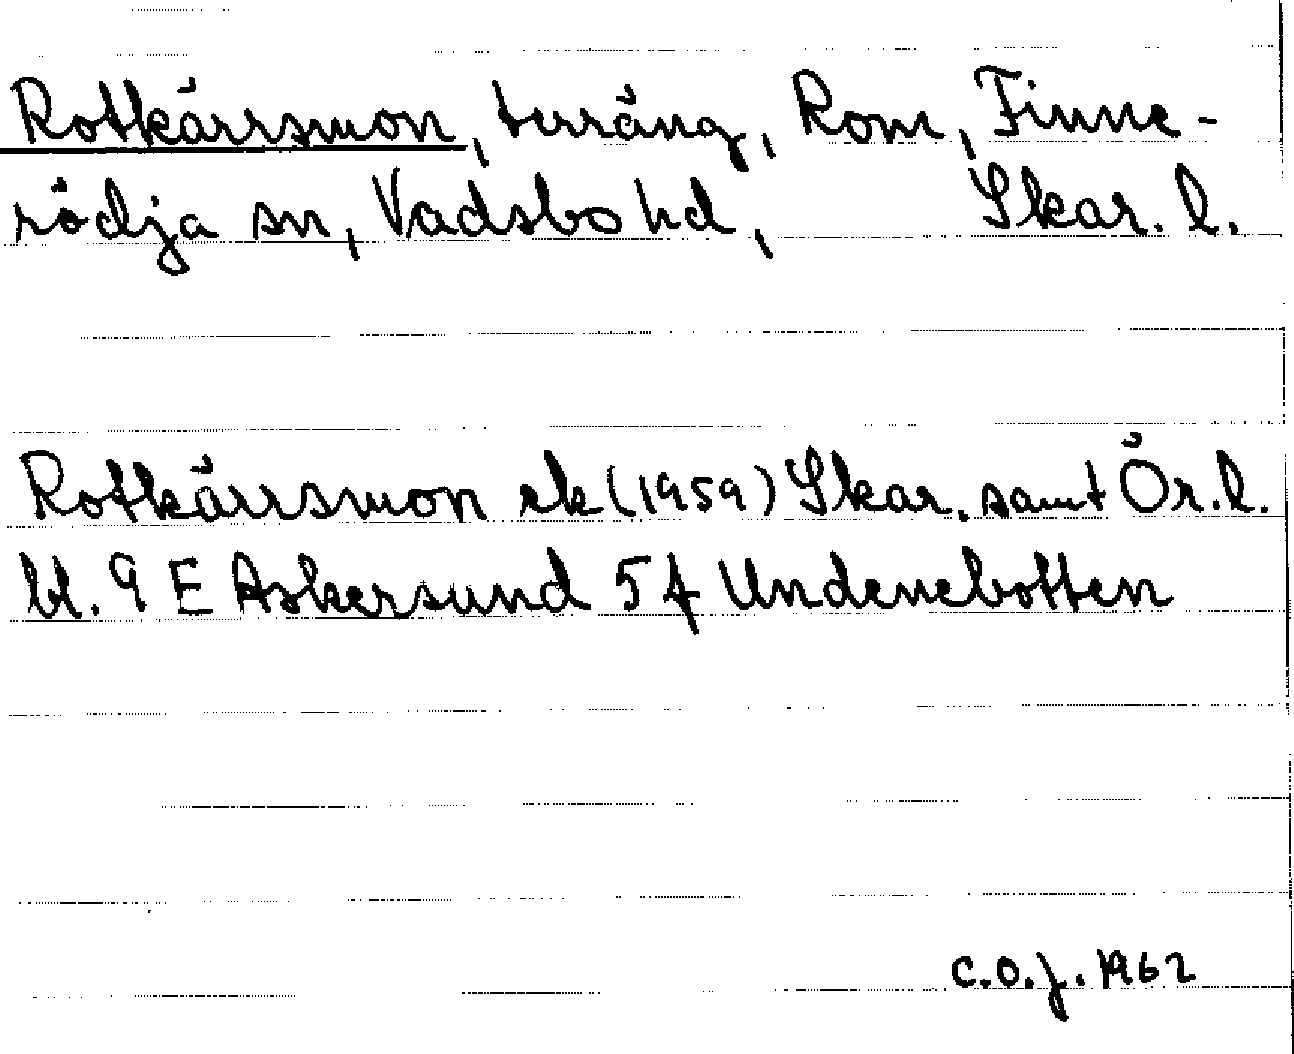 Rotkärrsmon, terräng, Rom, Finne-
rödja sn, Vadsbo hd, Skar. l.
Rotkärrsmon ek (1959) Skar. samt Ör. l.
bl. 9 E Askersund 5 f Undenebotten
C.O.J. 1962